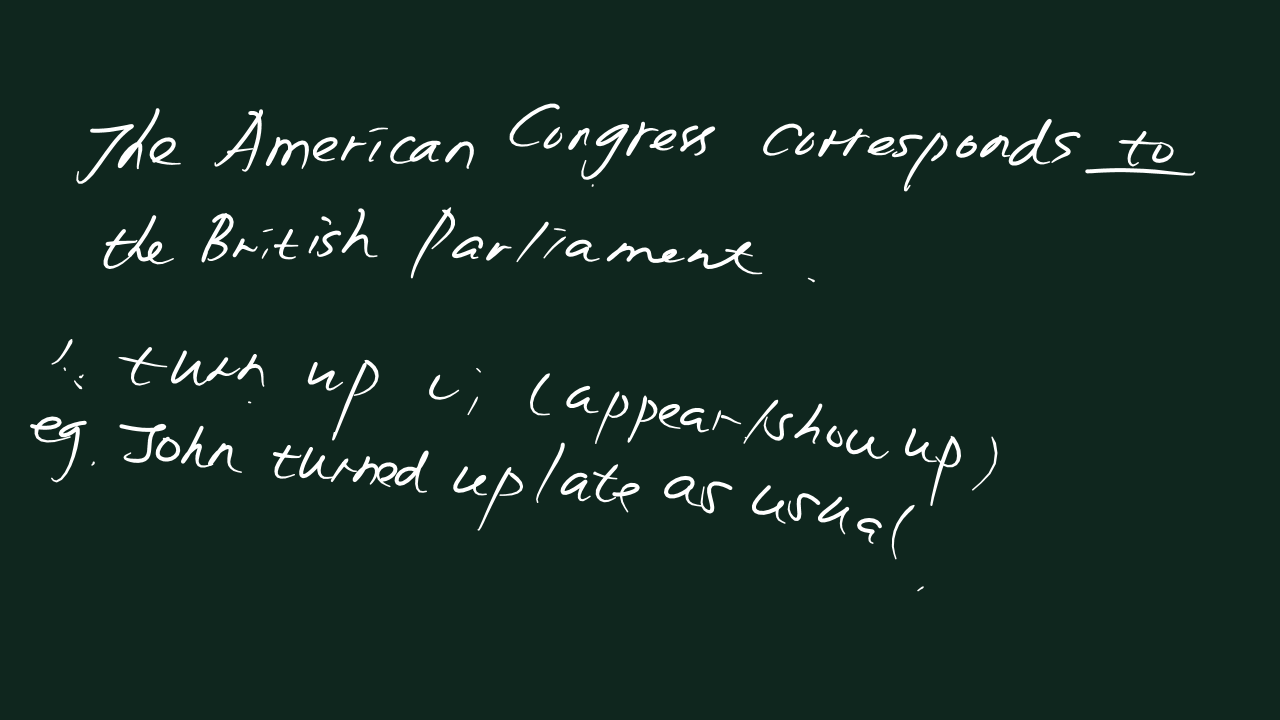 The American Congress corresponds to
the British Parliament.
turn up vi (appear/show up)
eg. John turned up late as usual.